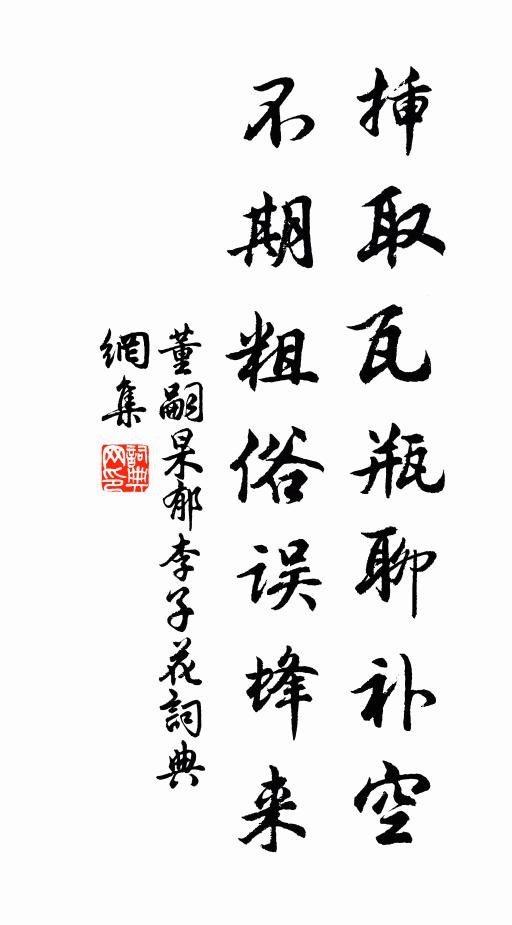 挿取瓦瓶聊补空
不期粗俗误蜂来
董嗣杲郁李子花詞典
網集
詞典
网印